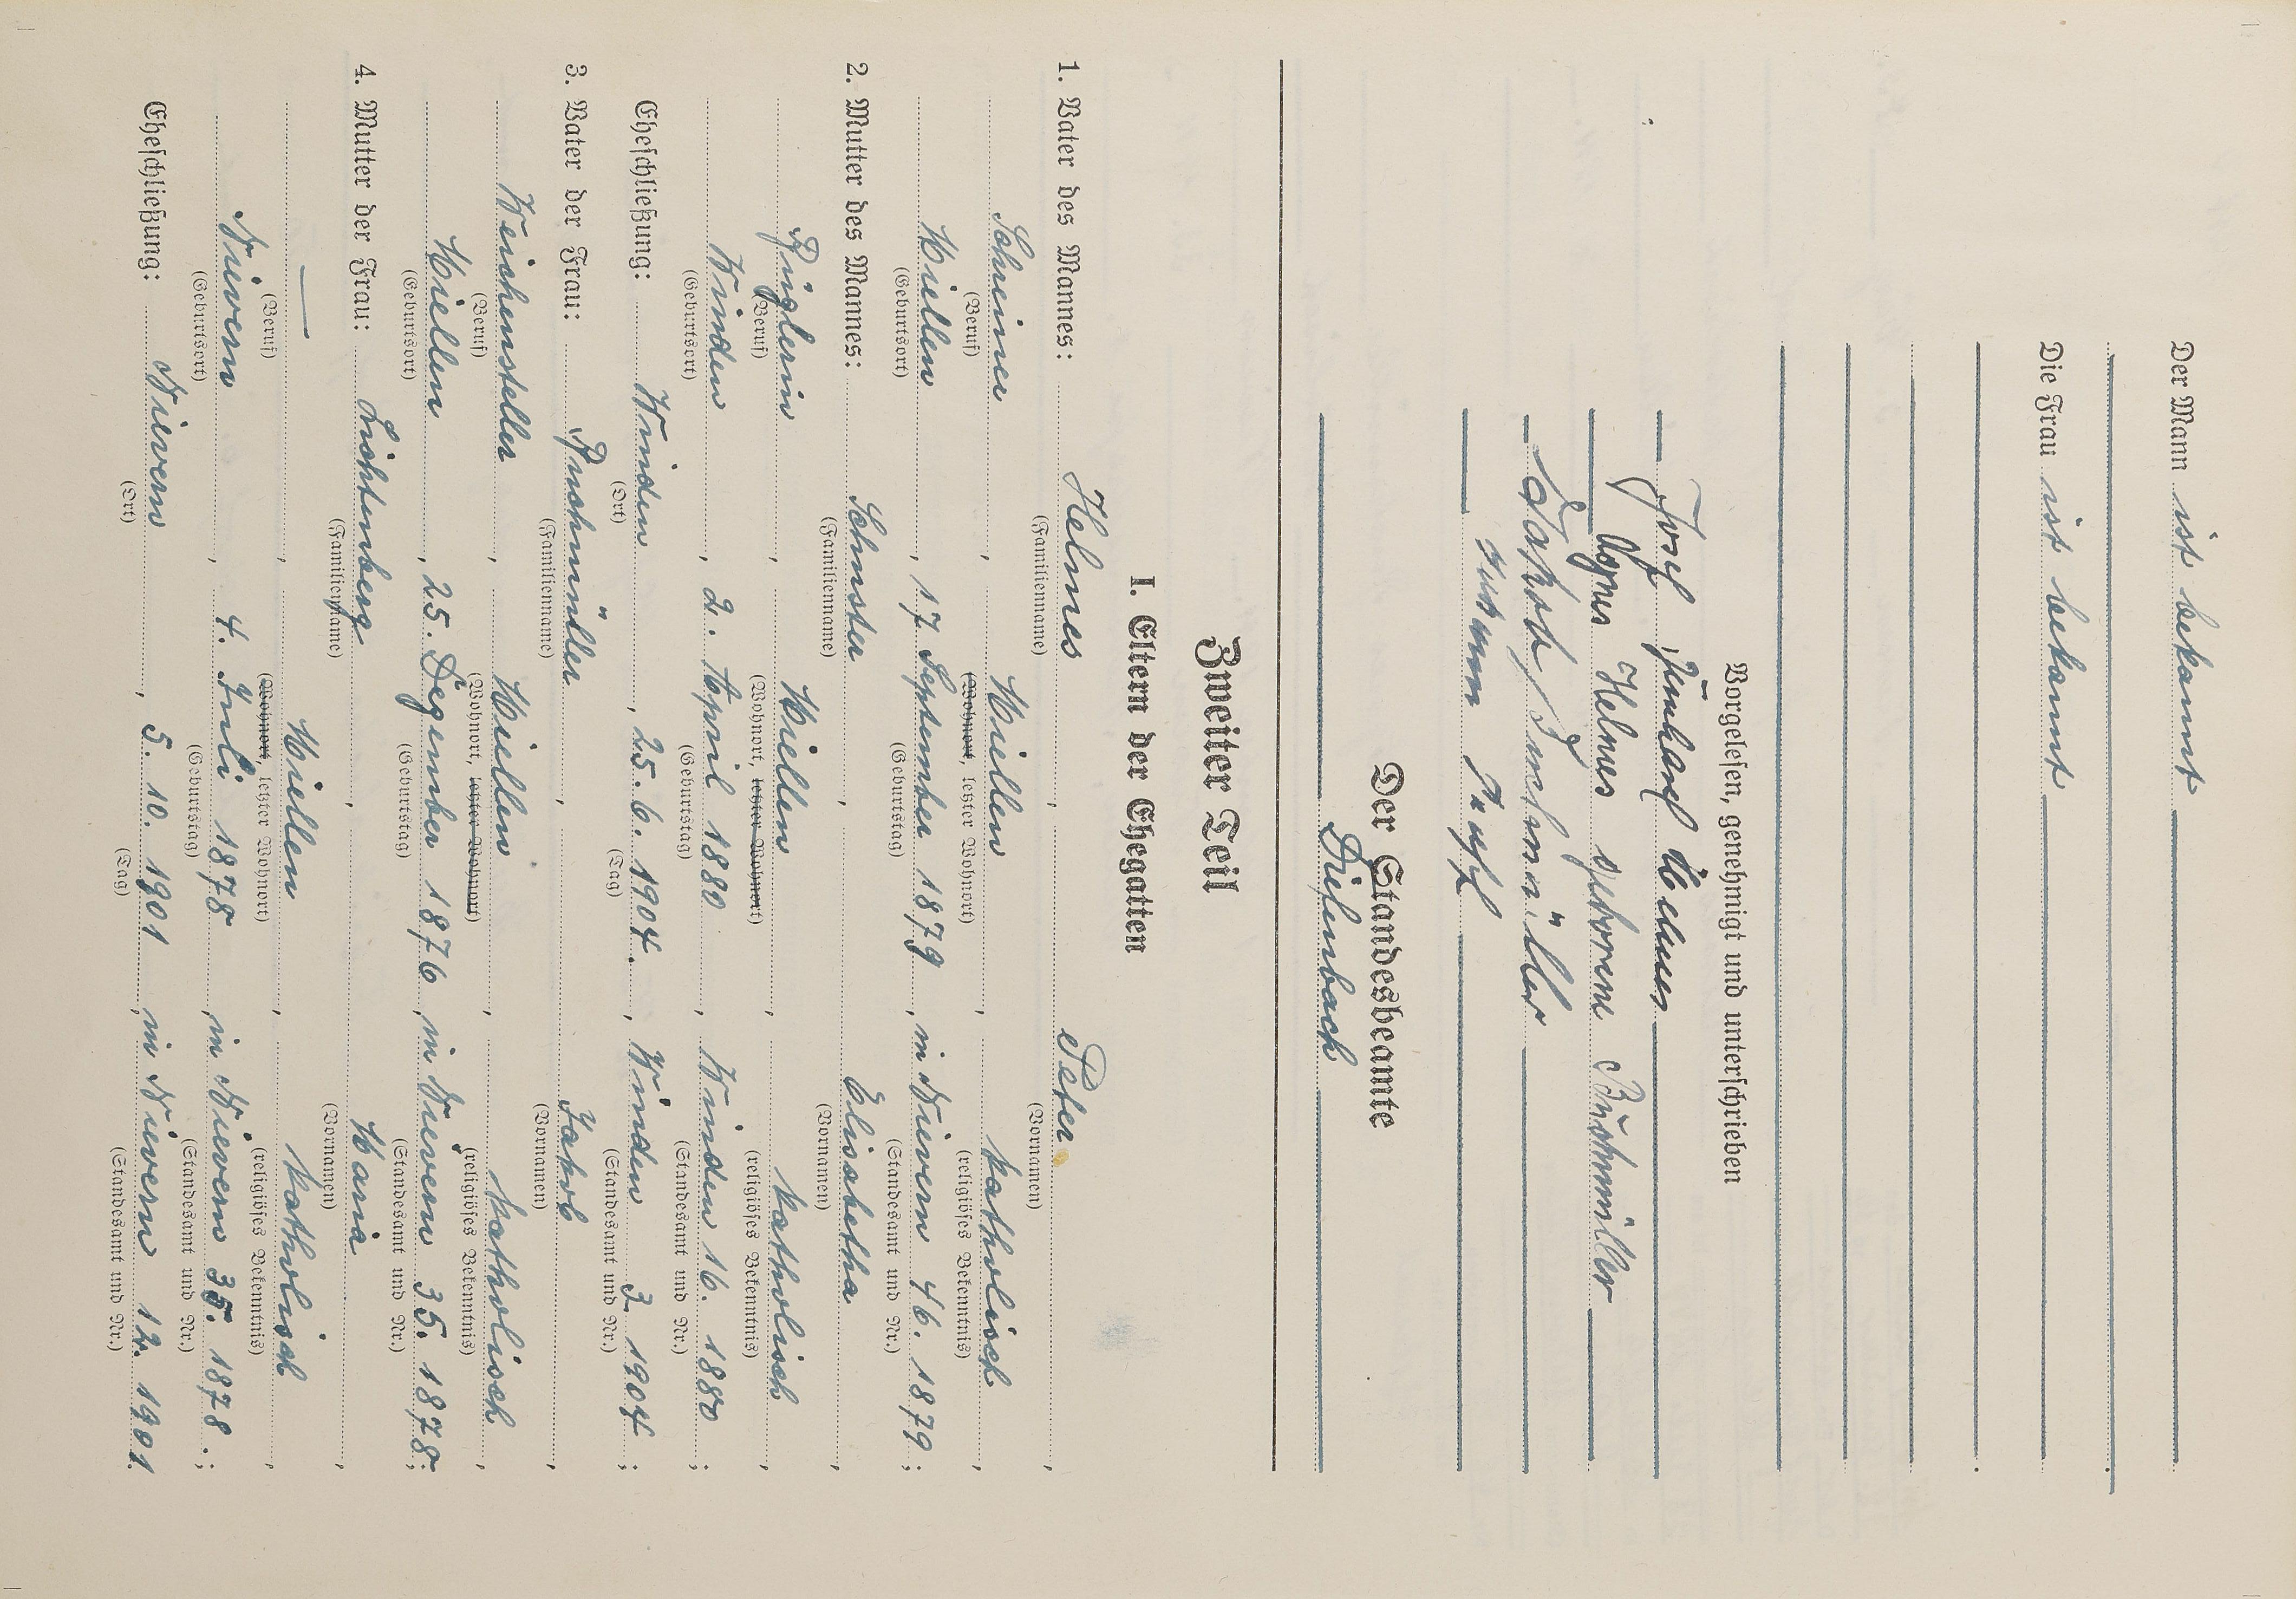 Der Mann ist bekannt
Die Frau ist bekannt
Vorgelesen, genehmigt und unterschrieben
Josef Helmes
Agnes Helmes geborene Buchmüller
Jakob Buchmüller
Der Standesbeamte
Zweiter Teil
I. Eltern der Ehegatten
1. Vater des Mannes: Helmes, Peter,
(Familienname) (Vornamen)
Schreiner, Miellen, katholisch,
(Beruf) (Wohnort, letzter Wohnort) (religiöses Bekenntnis)
Miellen, 17 September 1879, in Nievern 46. 1879;
(Geburtsort) (Geburtstag) (Standesamt und Nr.)
2. Mutter des Mannes: Schuster, Elisabetha,
(Familienname) (Vornamen)
Büglerin, Miellen, katholisch,
(Beruf) (Wohnort, letzter Wohnort) (religiöses Bekenntnis)
Winden, 2. April 1880, Winden 16. 1880;
(Geburtsort) (Geburtstag) (Standesamt und Nr.)
Eheschließung: Winden, 25. 6. 1904., Winden 3. 1904;
(Ort) (Tag) (Standesamt und Nr.)
3. Vater der Frau: Buchmüller, Jakob,
(Familienname) (Vornamen)
Weichensteller, Miellen, katholisch,
(Beruf) (Wohnort, letzter Wohnort) (religiöses Bekenntnis)
Miellen, 25. Dezember 1876, in Nievern 35. 1878;
(Geburtsort) (Geburtstag) (Standesamt und Nr.)
4. Mutter der Frau: Lichtenberg, Maria,
(Familienname) (Vornamen)
—, Miellen, katholisch,
(Beruf) (Wohnort, letzter Wohnort) (religiöses Bekenntnis)
Nievern, 4. Juli 1878, in Nievern 35. 1878.;
(Geburtsort) (Geburtstag) (Standesamt und Nr.)
Eheschließung: Nievern, 5. 10. 1901, in Nievern 12. 1901.
(Ort) (Tag) (Standesamt und Nr.)